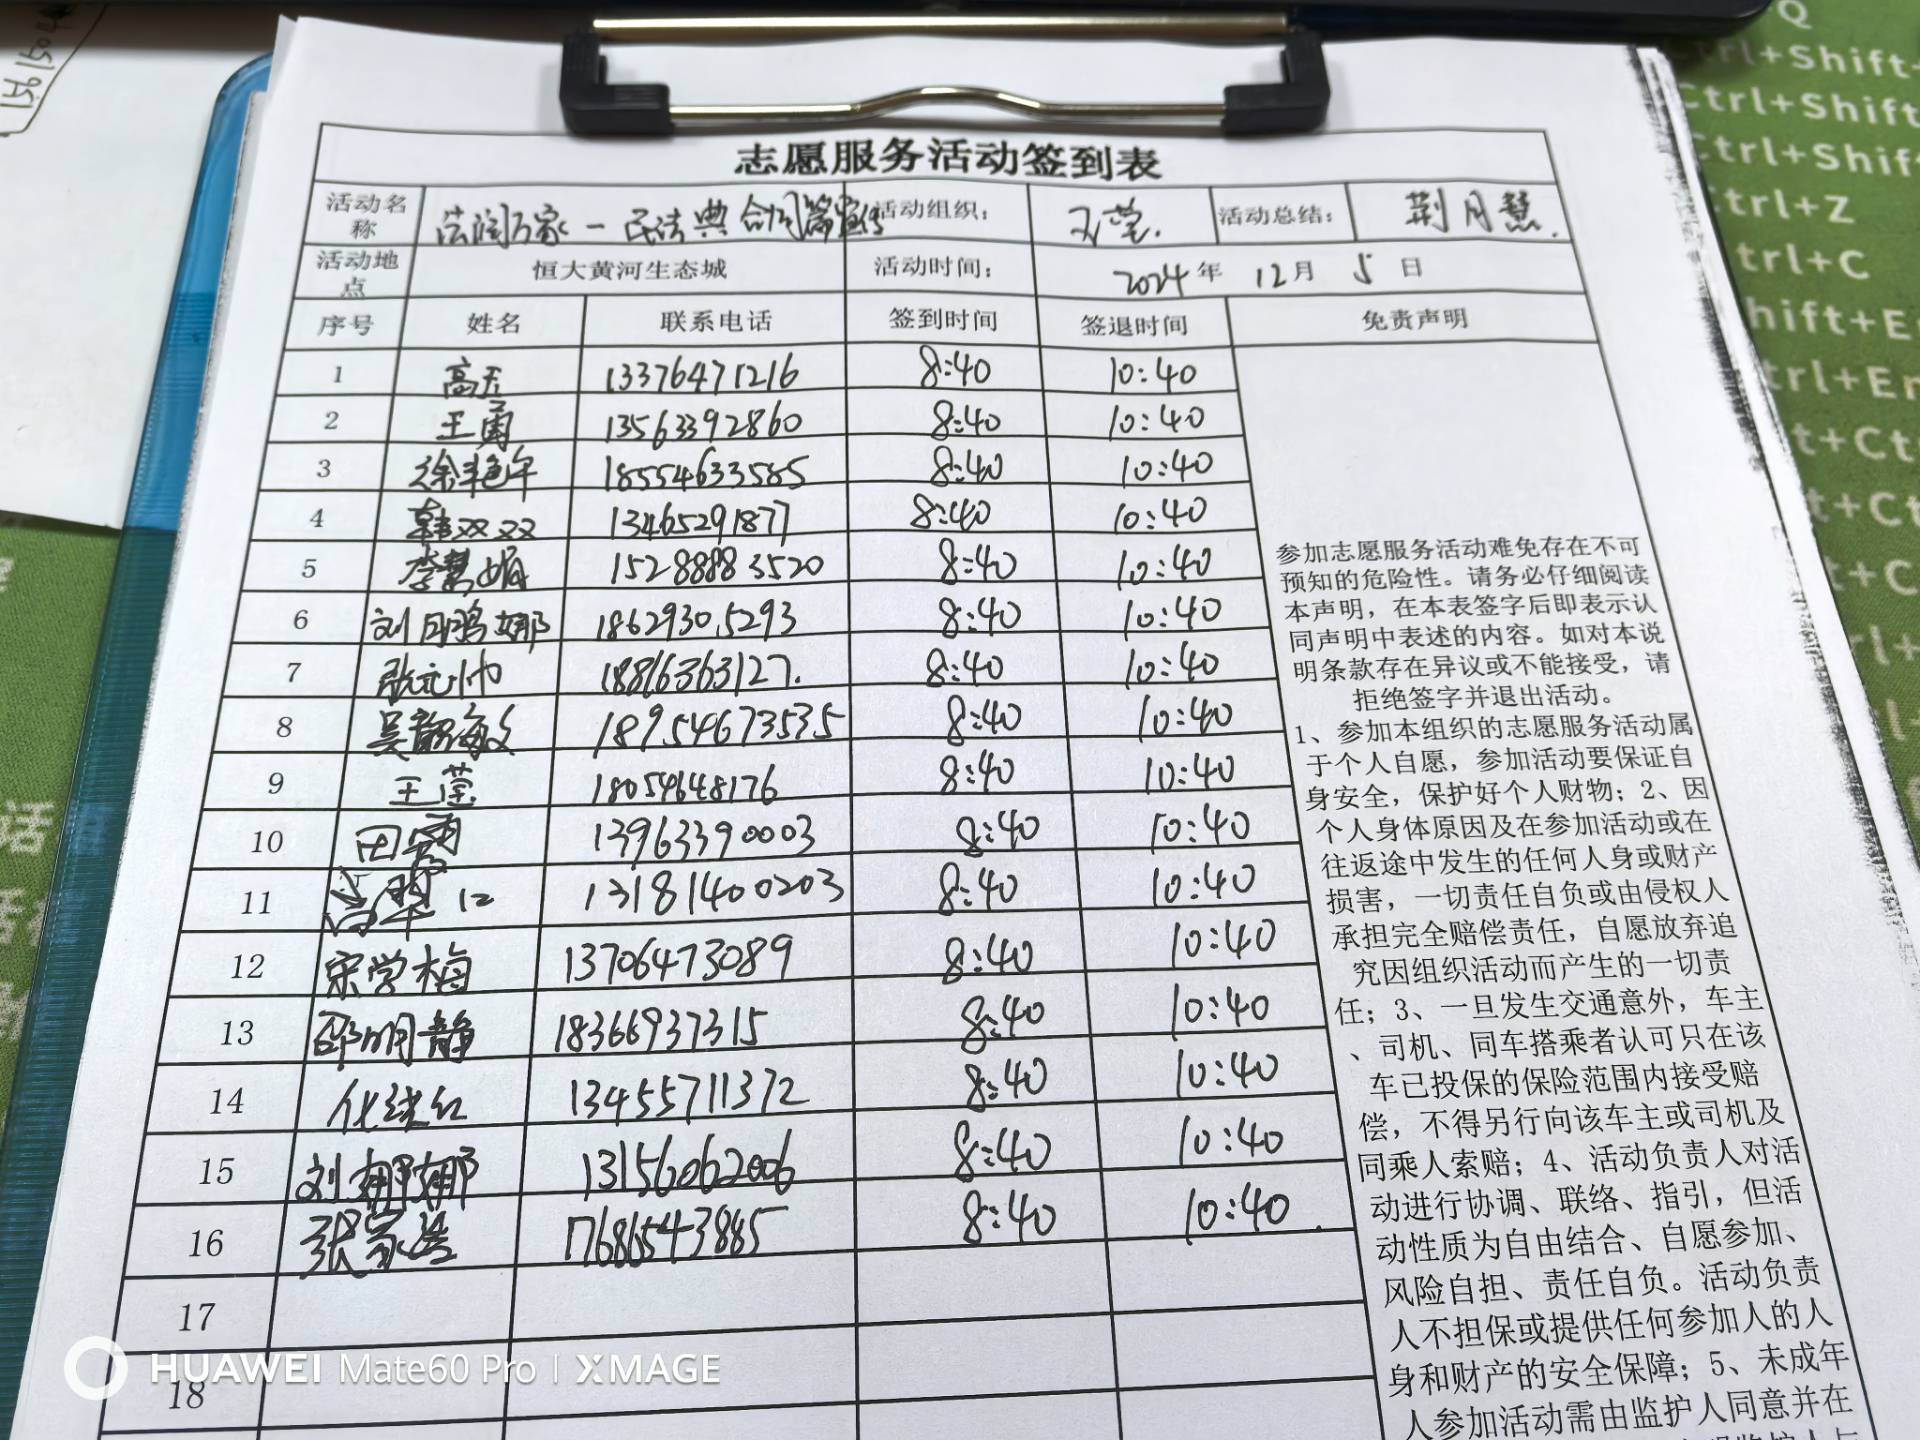 志愿服务活动签到表
活动名称 法润万家－民法典合同篇宣传 活动组织： 王莹. 活动总结： 荆月慧.
活动地点 恒大黄河生态城 活动时间： 2024年 12月 5日
序号 姓名 联系电话 签到时间 签退时间 免责声明
1 高玉 13376471216 8:40 10:40
2 王勇 13563392860 8:40 10:40
3 徐艳午 18554633585 8:40 10:40
4 韩双双 13465291877 8:40 10:40
5 李慧娟 15288883520 8:40 10:40
6 刘月鹏娜 18629305293 8:40 10:40
7 张元帅 18816363127. 8:40 10:40
8 吴韶敏 18954673535 8:40 10:40
9 王莹 18054648176 8:40 10:40
10 田 13963390003 8:40 10:40
11 13181400203 8:40 10:40
12 宋学梅 13706473089 8:40 10:40
13 邵明静 18366937315 8:40 10:40
14 化红 13455711372 8:40 10:40
15 刘娜娜 13156062006 8:40 10:40
16 张家 17686543885 8:40 10:40.
17
18
参加志愿服务活动难免存在不可
预知的危险性。请务必仔细阅读
本声明，在本表签字后即表示认
同声明中表述的内容。如对本说
明条款存在异议或不能接受，请
拒绝签字并退出活动。
1、参加本组织的志愿服务活动属
于个人自愿，参加活动要保证自
身安全，保护好个人财物；2、因
个人身体原因及在参加活动或在
往返途中发生的任何人身或财产
损害，一切责任自负或由侵权人
承担完全赔偿责任，自愿放弃追
究因组织活动而产生的一切责
任；3、一旦发生交通意外，车主
、司机、同车搭乘者认可只在该
车已投保的保险范围内接受赔
偿，不得另行向该车主或司机及
同乘人索赔；4、活动负责人对活
动进行协调、联络、指引，但活
动性质为自由结合、自愿参加、
风险自担、责任自负。活动负责
人不担保或提供任何参加人的人
身和财产的安全保障；5、未成年
人参加活动需由监护人同意并在
Q
Ctrl+Shift+
Ctrl+Shift
Ctrl+Shif
trl+Z
trl+C
hift+E
trl+En
t+Ct
t+Ct
+C
HUAWEI Mate60 Pro | XMAGE